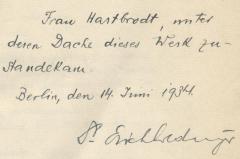 Frau Hartbrodt, unter
deren Dache dieses Werk zu-
standekam.
Berlin, den 14. Juni 1934.
Dr